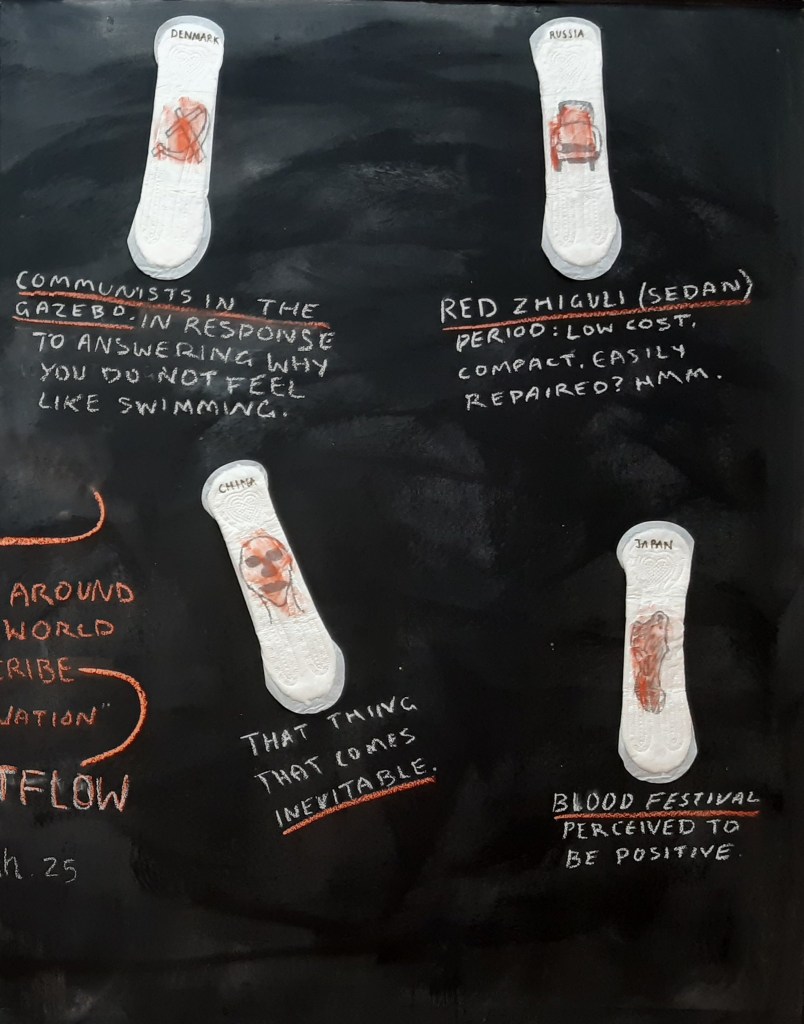 DENMARK
COMMUNISTS IN THE
GAZEBO. IN RESPONSE
TO ANSWERING WHY
YOU DO NOT FEEL
LIKE SWIMMING.
RUSSIA
RED ZHIGULI (SEDAN)
PERIOD: LOW COST,
COMPACT, EASILY
REPAIRED? HMM.
AROUND
WORLD
CRIBE
UATION"
TFLOW
h. 25
CHINA
THAT THING
THAT COMES
INEVITABLE.
JAPAN
BLOOD FESTIVAL
PERCEIVED TO
BE POSITIVE.